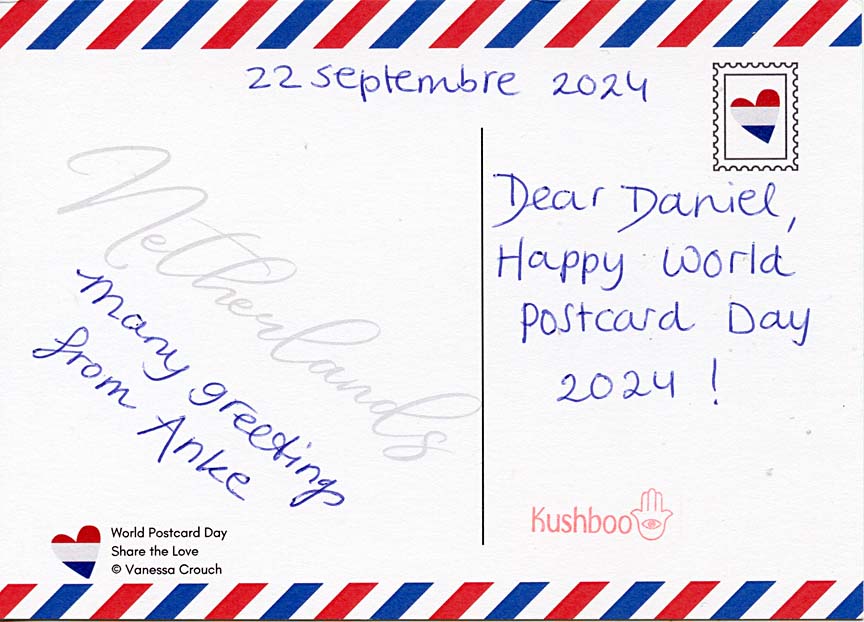 22 septembre 2024
Netherlands
many greetings
from Anke
Dear Daniel,
Happy World
Postcard Day
2024 !
Kushboo
World Postcard Day
Share the Love
© Vanessa Crouch